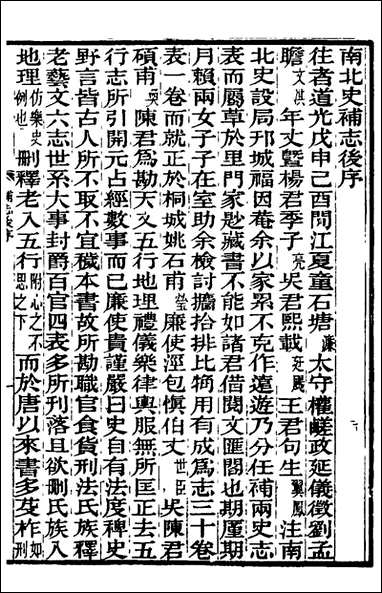 南北史補志後序
往者道光戊申己酉間江夏童石塘濂太守權鹺政延儀徵劉孟
瞻文淇年丈暨楊君季子亮吳君熙載廷颺王君句生翼鳳注南
北史設局邗城福因菴余以家累不克作遠遊乃分任補兩史志
表而屬草於里門家尠藏書不能如諸君借閱文匯閣也厪期
月賴兩女子子在室助余檢討攟拾排比犓用有成爲志三十卷
表一卷而就正於桐城姚石甫瑩廉使涇包愼伯丈世臣吳陳君
碩甫奐陳君爲勘天文五行地理禮儀樂律輿服無所匡正去五
行志所引開元占經數事而已廉使貴謹嚴曰史自有法度稗史
野言皆古人所不取不宜穢本書故所勘職官食貨刑法氏族釋
老藝文六志世系大事封爵百官四表多所刋落且欲刪氏族入
地理仿樂史例也刪釋老入五行附心之不思之下而於唐以來書多芟柞如刑
補志後序